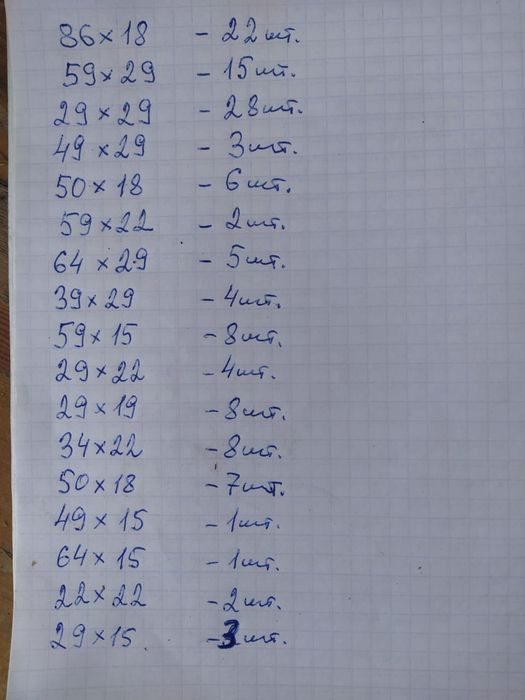 86×18 - 22шт.
59×29 - 15шт.
29×29 - 28шт.
49×29 - 3шт.
50×18 - 6шт.
59×22 - 2шт.
64×29 - 5шт.
39×29 - 4шт.
59×15 - 8шт.
29×22 - 4шт.
29×19 - 8шт.
34×22 - 8шт.
50×18 - 7шт.
49×15 - 1шт.
64×15 - 1шт.
22×22 - 2шт.
29×15. - 3шт.